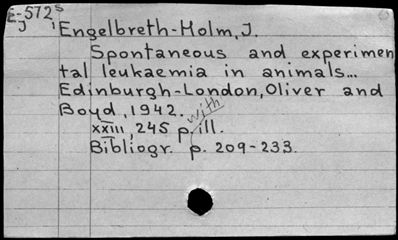 E-572 s
J 1
Engelbreth-Holm, J.
Spontaneous and experimen
tal leukaemia in animals...
Edinburgh-London, Oliver and
Boyd, 1942.
with
xxiii, 245 p. ill.
Bibliogr. p. 209-233.